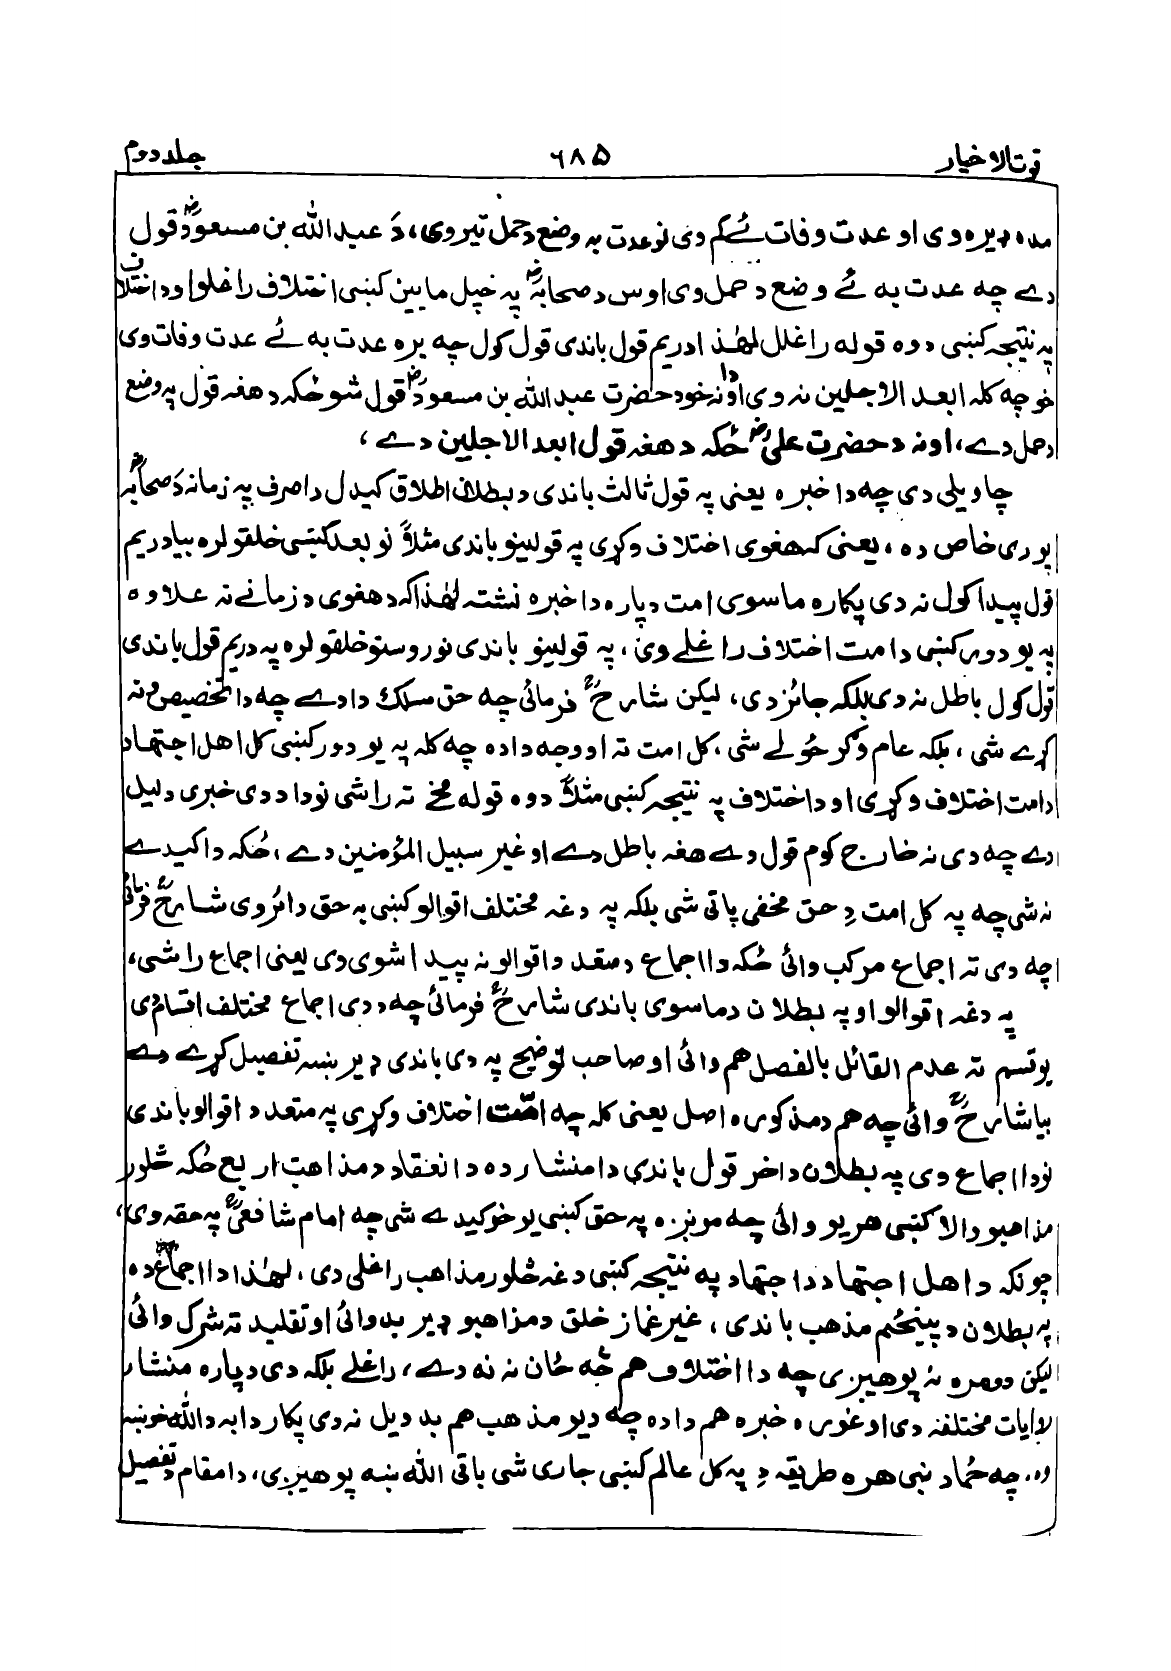 قوت الاخیار ٦٨۵ جلد دوم
مده ډیره وی او عدت وفات ئے کم وی نو عدت به وضع د حمل تیروی، دَ عبد الله بن مسعودؓ قول
دے چه عدت به ئے وضع د حمل وی اوس د صحابهؓ په خپل مابین کښی اختلاف راغلو او د اختلاف
په نتیجه کښی دوه قوله راغلل لهٰذا دریم قول باندی قول کول چه یره عدت به ئے عدت وفات وی
خو چه کله ابعد الاجلین نه وی دا او نه خود حضرت عبد الله بن مسعودؓ قول شو ځکه د هغه قول په وضع
د حمل دے، او نه د حضرت علیؓ ځکه د هغه قول ابعد الاجلین دے،
چا ویلی دی چه دا خبره یعنی په قول ثالث باندی د بطلان اطلاق کیدل دا صرف په زمانه دَ صحابهؓ
پوری خاص ده، یعنی که هغوی اختلاف وکړی په قولینو باندی مثلاً نو بعد کښی خلقو لره بیا دریم
قول پیدا کول نه دی پکاره ماسوی امت دپاره دا خبره نشته لهٰذا که د هغوی د زمانے نه علاوه
په یو دور کښی د امت اختلاف راغلے وی، په قولینو باندی نو روستو خلقو لره په دریم قول باندی
قول کول باطل نه دی بلکه جائز دی، لیکن شارحؒ فرمائی چه حق مسلک دا دے چه دا تخصیص د نه
کړے شی، بلکه عام د وګرځولے شی، کل امت ته او وجه دا ده چه کله په یو دور کښی کل اهل اجتهاد
د امت اختلاف وکړی او د اختلاف په نتیجه کښی مثلاً دوه قوله مخے ته راشی نو دا د دی خبری دلیل
دے چه د دی نه خارج کوم قول دے هغه باطل دے او غیر سبیل المؤمنین دے، ځکه دا کیدے
نه شی چه په کل امت دِ حق مخفی پاتی شی بلکه په دغه مختلف اقوالو کښی به حق دائر وی شارحؒ فرمائی
چه دی ته اجماع مرکب وائی ځکه دا اجماع د متعدد و اقوالو نه پیدا شوی دی یعنی اجماع راشی،
په دغه اقوالو او په بطلان د ماسوی باندی شارحؒ فرمائی چه د دی اجماع مختلف اقسام دی
یو قسم ته عدم القائل بالفصل هم وائی او صاحب توضیح په دی باندی ډیر ښه تفصیل کړے دے
بیا شارحؒ وائی چه هم د مذکوره اصل یعنی کله چه امّت اختلاف وکړی په متعدد اقوالو باندی
نو دا اجماع دی په بطلان د اخر قول باندی دا منشار ده د انعقاد د مذاهب اربع ځکه څلور
مذاهبو والا کښی هر یو وائی چه مونږه په حق کښی یو خو کیدے شی چه امام شافعیؒ په حقه وی،
چونکه د اهل اجتهاد د اجتهاد په نتیجه کښی دغه څلور مذاهب راغلی دی، لهٰذا دا اجماع ده
په بطلان د پینځم مذهب باندی، غیر غماز خلق د مذاهبو ډیر بد وائی او تقلید ته شرک وائی
لیکن دومره نه پوهیږی چه دا اختلاف هم څه ځان نه نه دے، راغلے بلکه د دی دپاره منشار
روایات مختلفه دی او غوره خبره هم دا ده چه د یو مذهب هم بدویل نه دی پکار دا به د الله خوښه
وه، چه ځما د نبی هره طریقه دِ په کل عالم کښی جاری شی باقی الله ښه پوهیږی، دا مقام د تفصیل